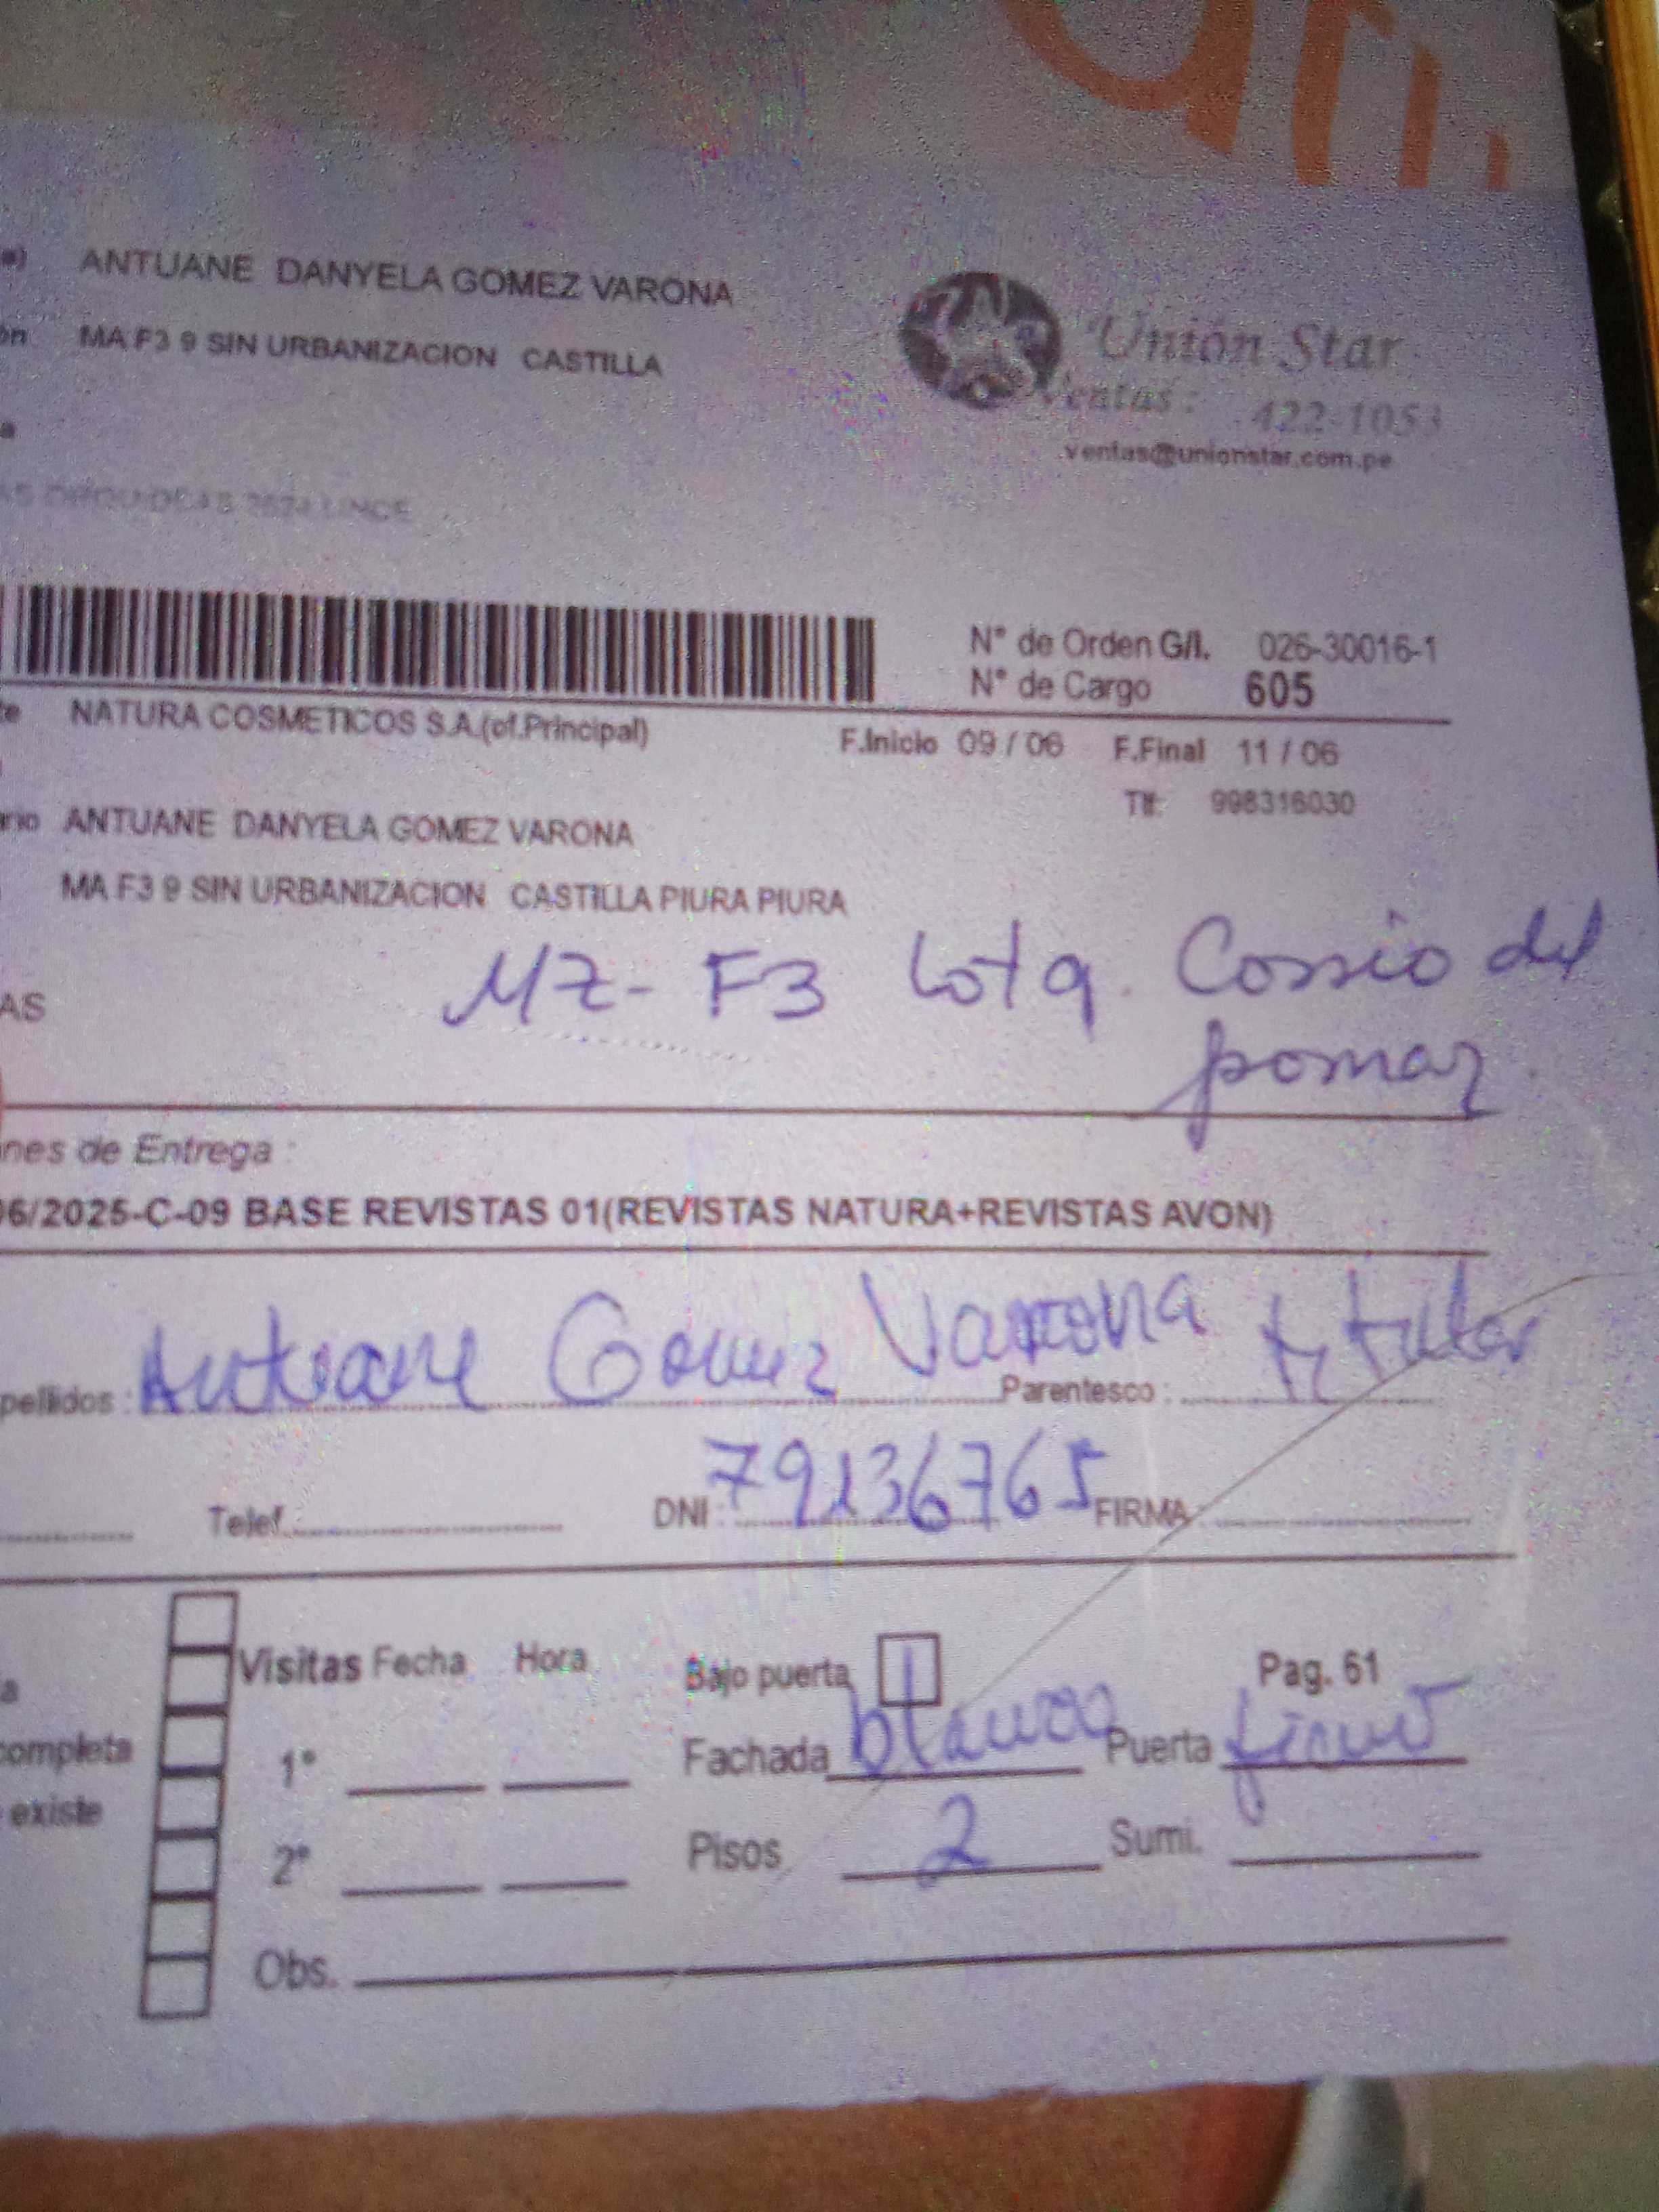 ANTUANE DANYELA GOMEZ VARONA
MA F3 9 SIN URBANIZACION CASTILLA
Unión Star
Ventas: 422-1053
ventas@unionstar.com.pe
N° de Orden G/I. 026-30016-1
N° de Cargo 605
NATURA COSMETICOS S.A.(of.Principal)
F.Inicio 09 / 06 F.Final 11 / 06
Tlf: 998316030
ANTUANE DANYELA GOMEZ VARONA
MA F3 9 SIN URBANIZACION CASTILLA PIURA PIURA
MZ- F3 lot 9. Cossio del
AS
pomar.
nes de Entrega :
06/2025-C-09 BASE REVISTAS 01(REVISTAS NATURA+REVISTAS AVON)
pellidos : Antuane Gomez Varona Parentesco : titular
Telef.: DNI : 79136765 FIRMA :
Visitas Fecha Hora Bajo puerta Pag. 61
a
completa 1° Fachada blanco Puerta
existe
2° Pisos 2 Sumi.
Obs.